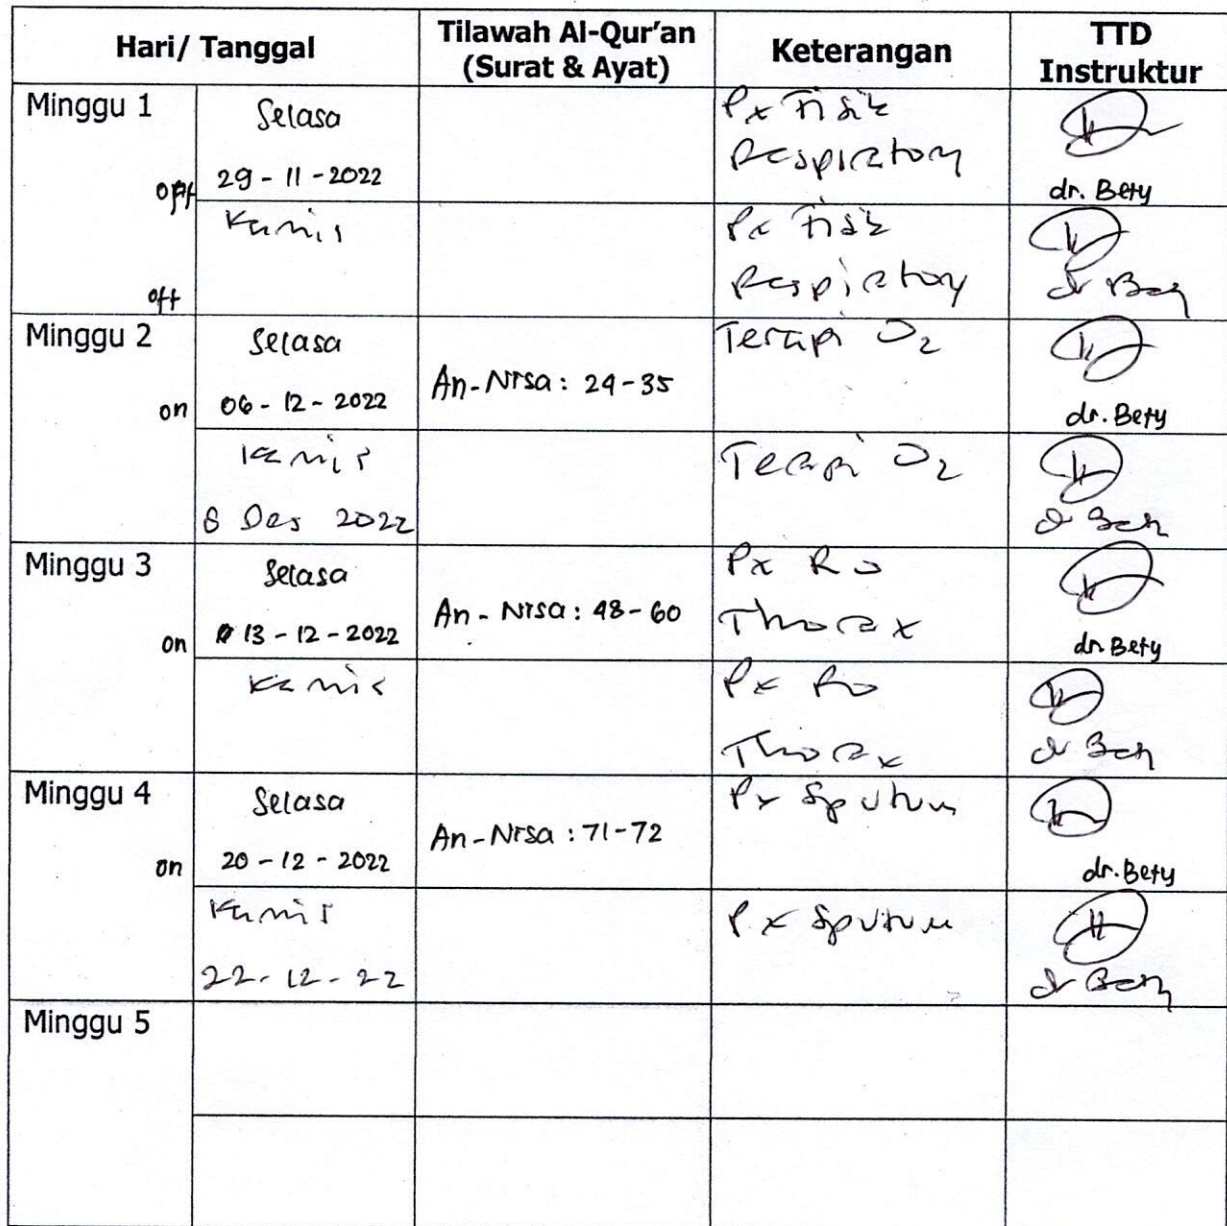 Hari/ Tanggal
Tilawah Al-Qur'an
(Surat & Ayat)
Keterangan
TTD
Instruktur
Minggu 1
off
Selasa
29 - 11 - 2022
Px Fisik
Respiratory
dr. Bety
off
Kamis
Px Fisik
Respiratory
dr Bety
Minggu 2
on
Selasa
06 - 12 - 2022
An-Nisa : 24-35
Terapi O2
dr. Bety
Kamis
8 Des 2022
Terapi O2
dr Bety
Minggu 3
on
Selasa
13 - 12 - 2022
An - Nisa : 48 - 60
Px Ro
Thorax
dr. Bety
Kamis
Px Ro
Thorax
dr Bety
Minggu 4
on
Selasa
20 - 12 - 2022
An-Nisa : 71-72
Px Sputum
dr. Bety
Kamis
22-12-22
Px Sputum
dr Bety
Minggu 5